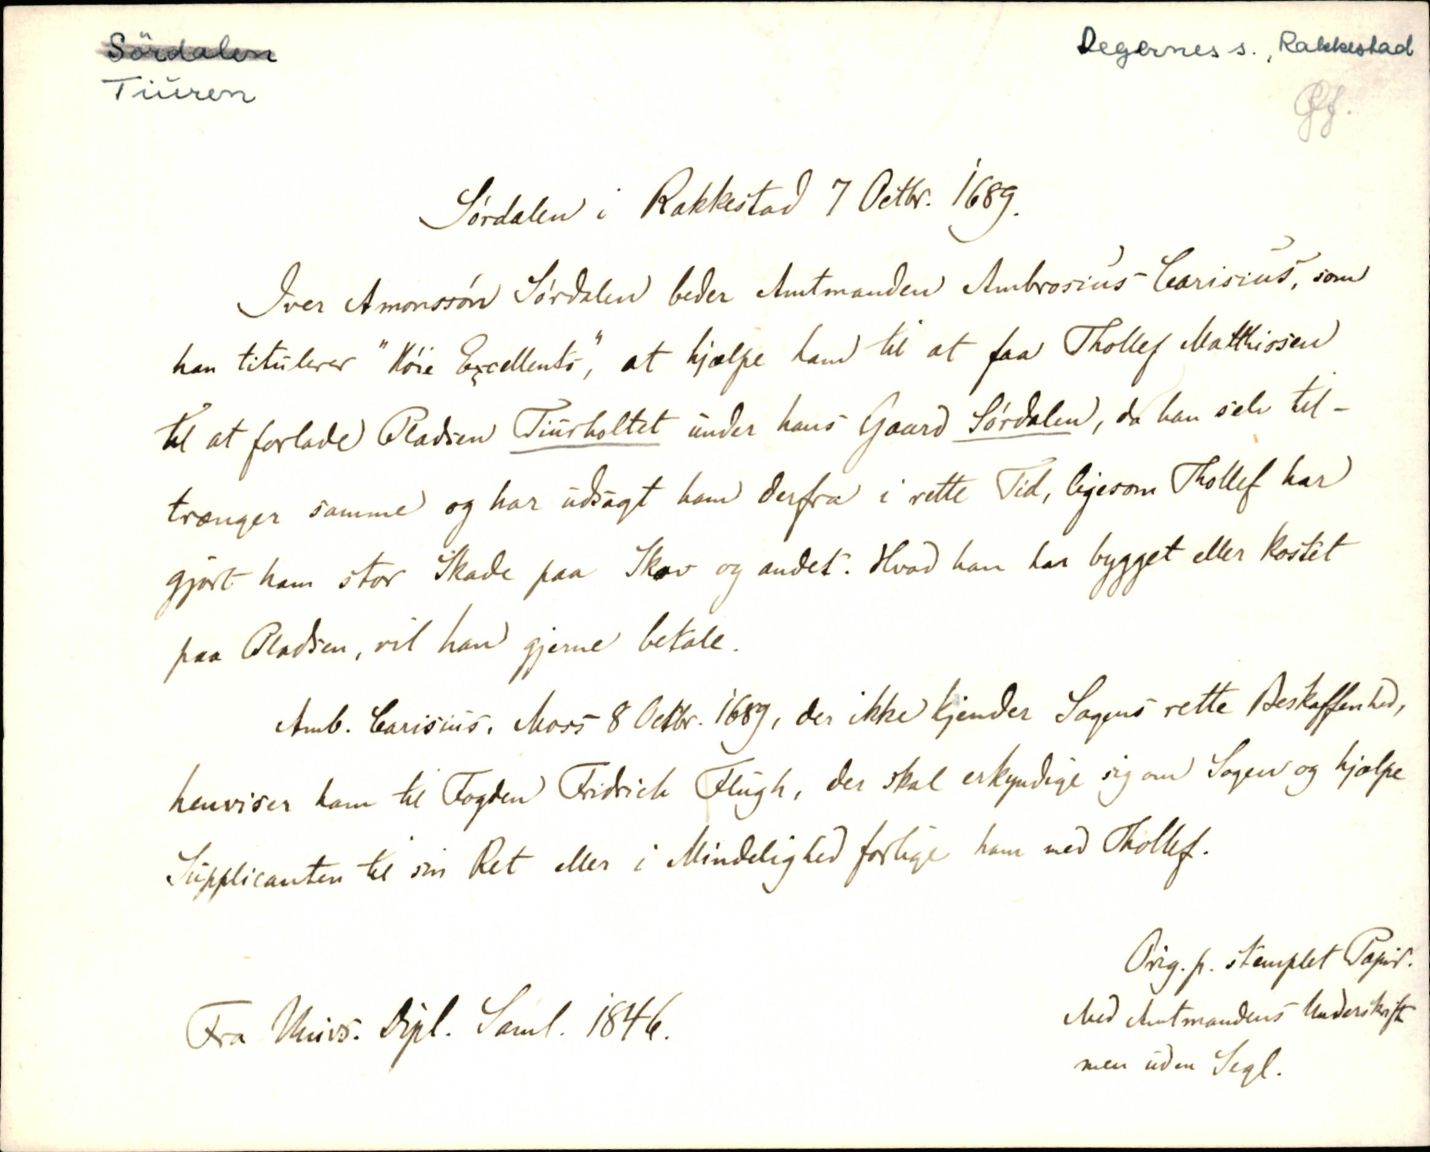 Sördalen
Tiuren
Degernes s., Rakkestad
Sørdalen i Rakkestad 7 Octbr. 1689.
Iver Amonssøn Sørdalen beder Amtmanden Ambrosius Carisius, som
han titulerer "Høie Excellents", at hjælpe ham til at faa Thollef Matthissen
til at forlade Pladsen Tiurholtet under hans Gaard Sørdalen, da han selv til-
trænger samme og har udsagt ham derfra i rette Tid, ligesom Thollef har
gjort ham stor Skade paa Skov og andet. Hvad han har bygget eller kostet
paa Pladsen, vil han gjerne betale.
Amb. Carisius, Moss 8 Octbr. 1689, der ikke kjender Sagens rette Beskaffenhed,
henviser ham til Fogden Fridrich Flugh, der skal erkyndige sig om Sagen og hjælpe
Supplicanten til sin Ret eller i Mindelighed forlige ham med Thollef.
Orig. p. stemplet Papir.
Med Amtmandens Underskrift
men uden Segl.
Fra Univs. Dipl. Saml. 1846.